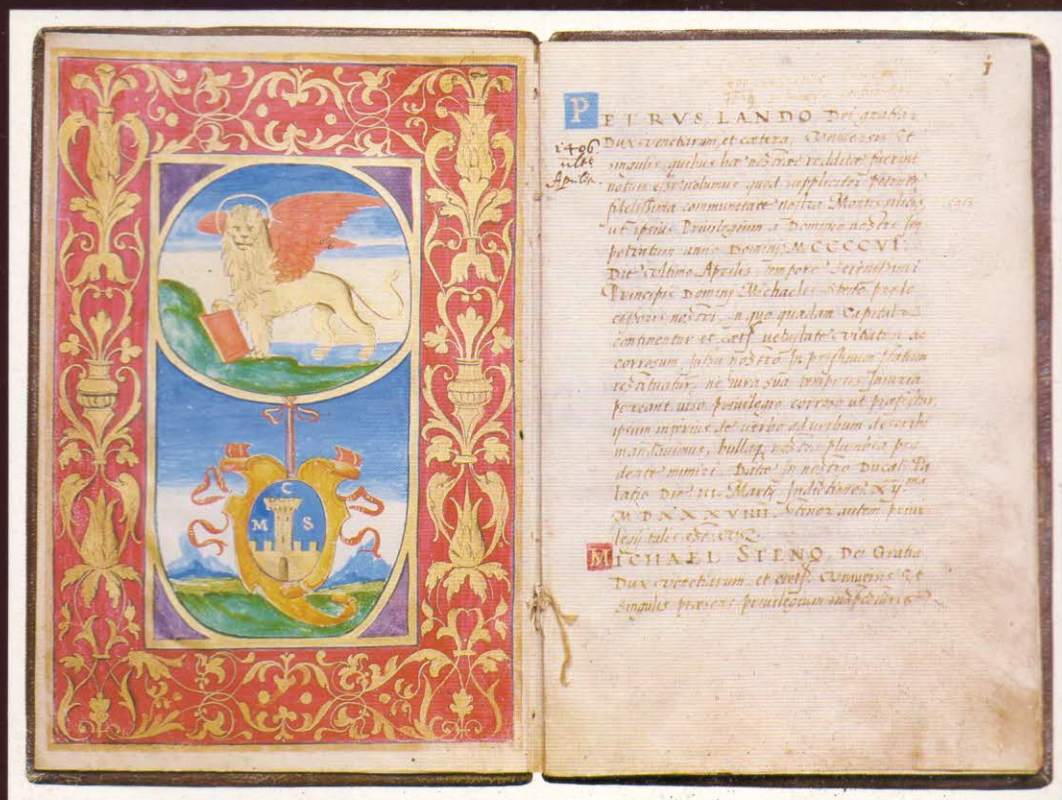 C
M S
1
PETRVS LANDO Dei gratia
Dux Venetiarum et cætera, Universis et
1406
ulto
Aprilis
singulis quibus hæ nostræ redditæ fuerint
notum esse volumus quod suppliciter petente
fidelissima communitate nostra Montis silicis,
ut ipsius Privilegium a Dominio nostro Im
petratum anno Domini M CCCC VI
Die ultimo Aprilis tempore Serenissimi
Principis Domini Michaelis Steno præde
cessoris nostri, in quo quædam Capitula
continentur et vetustate
corrosum Jussu nostro In pristinum statum
restituatur, ne iura sua temporis Iniuria
pereant, viso privilegio corroso ut præfertur
ipsum inferius de verbo ad verbum describi
mandavimus, bullaq nostra plumbea pen
dente muniri. Datæ In nostro Ducali Pa
latio Die III Martij Indictione XIJma
M D XXX VIIII. Tenor autem privi
legij talis est
MICHAEL STENO, Dei Gratia
Dux Venetiarum, et Universis et
Singulis præsens privilegium inspecturis